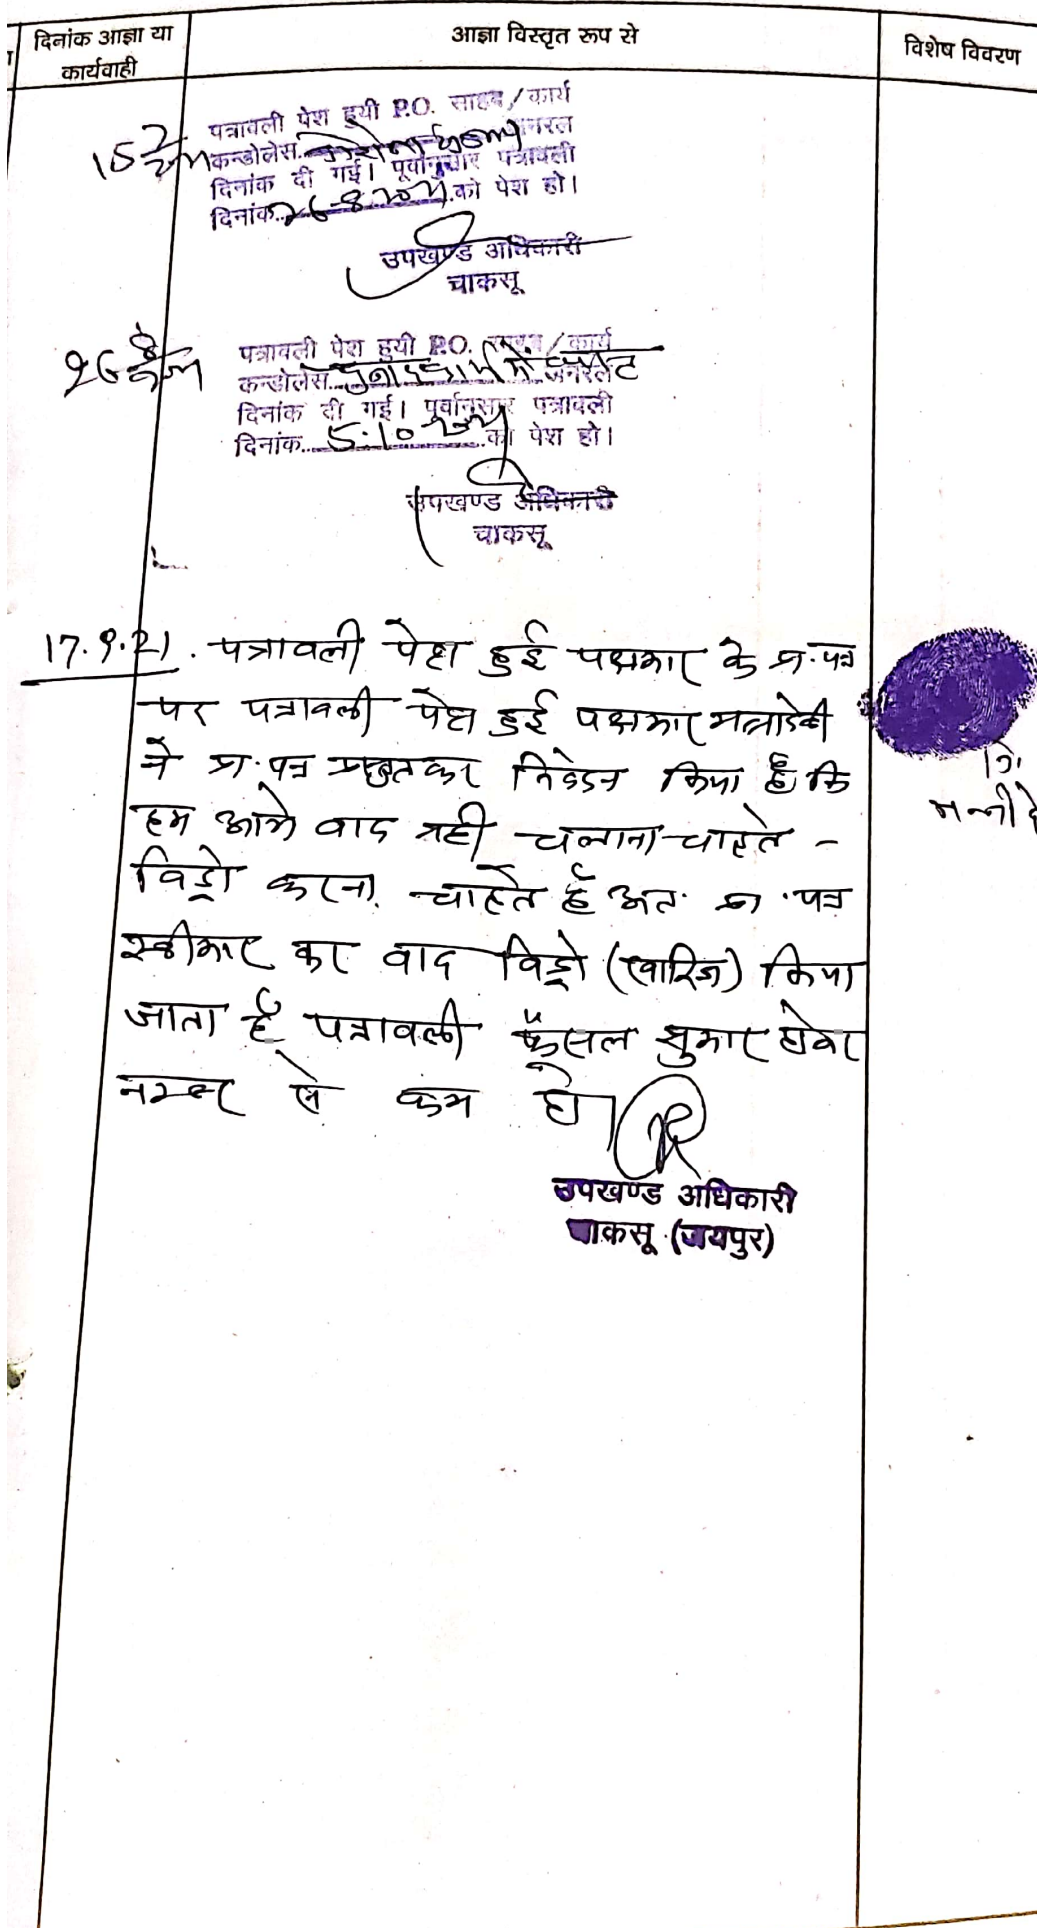 दिनांक आज्ञा या
कार्यवाही
आज्ञा विस्तृत रूप से
विशेष विवरण
पत्रावली पेश हुयी P.O. साहब/कार्य
कन्डोलेस
दिनांक दी गई। पूर्वानुसार पत्रावली
दिनांक 26-8-2021 को पेश हो।
उपखण्ड अधिकारी
चाकसू
पत्रावली पेश हुयी P.O. साहब/कार्य
कन्डोलेस
दिनांक दी गई। पूर्वानुसार पत्रावली
दिनांक 5.10 को पेश हो।
उपखण्ड अधिकारी
चाकसू
17.9.21. पत्रावली पेश हुई पक्षकार के प्रा.पत्र
पर पत्रावली पेश हुई पक्षकार
ने प्रा.पत्र प्रस्तुत कर निवेदन किया है कि
हम आगे वाद नही चलाना चाहते -
विड्रो करना चाहते हैं अतः प्रा.पत्र
स्वीकार कर वाद विड्रो (खारिज) किया
जाता है पत्रावली फैसल सुमार होकर
नम्बर से कम हो।
उपखण्ड अधिकारी
चाकसू (जयपुर)
नि.